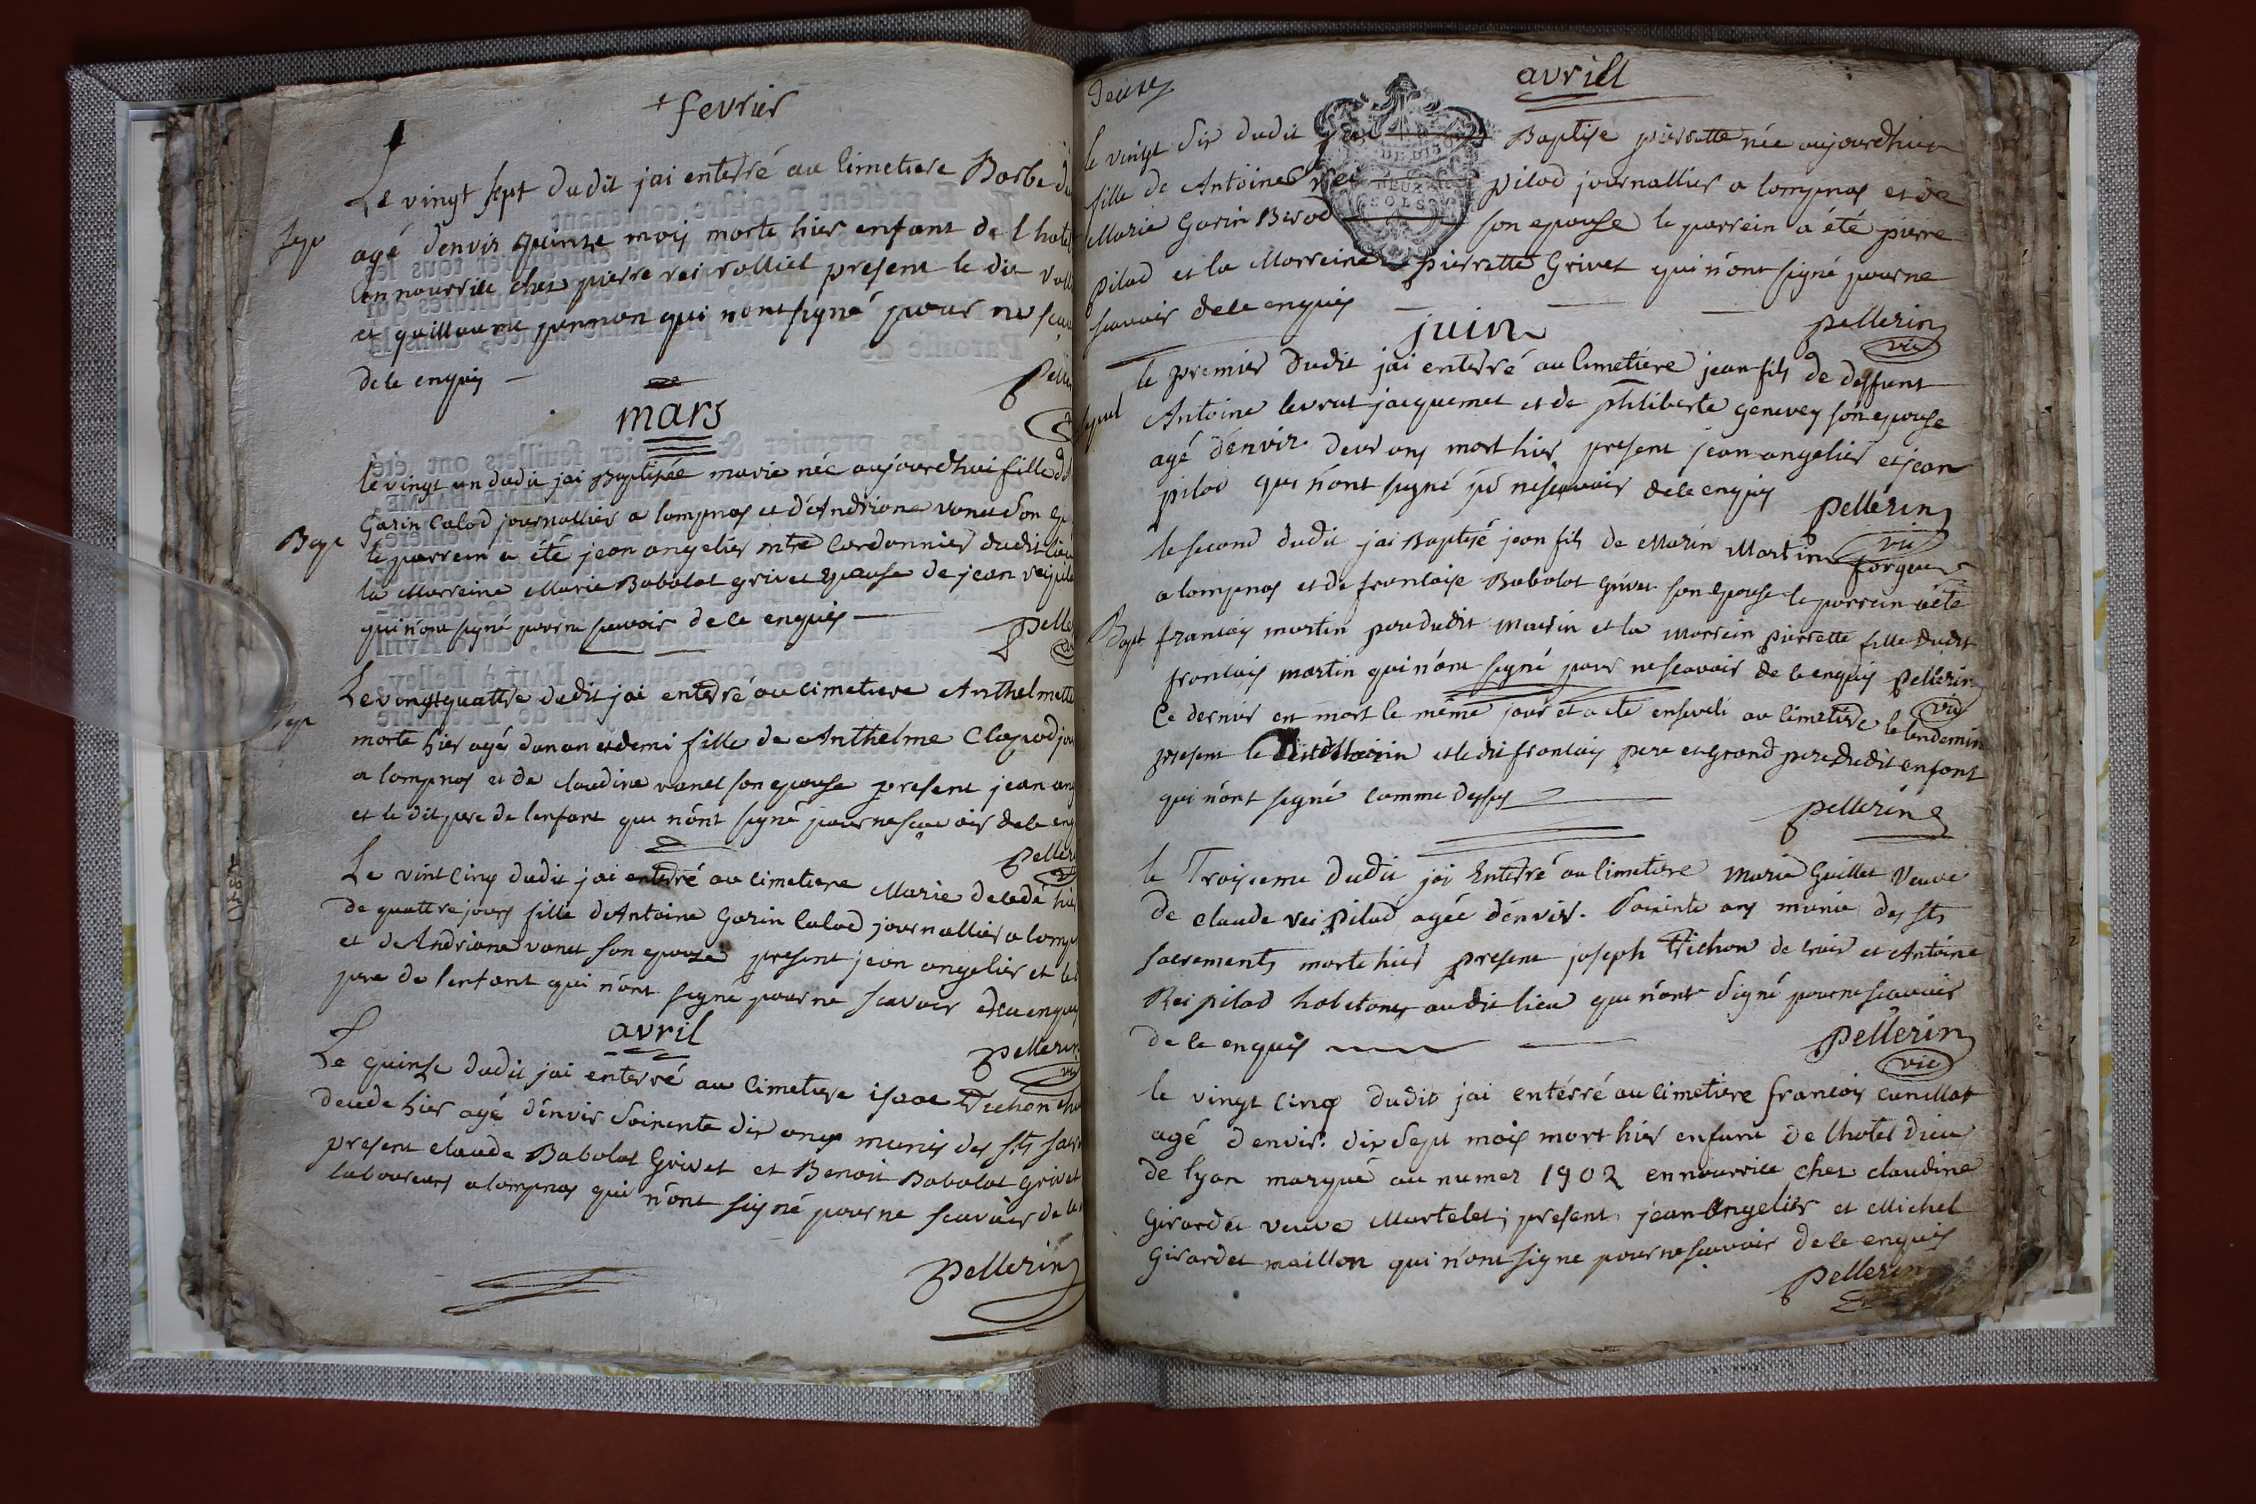 + fevrier
Le vingt sept dudit jai enterré au Cimetiere Barbe
Sepu
agé denvir quinze mois morte hier enfant de l hotel
en nourrice chez pierre rei volliet present le dit
et guillaume pennon qui n'ont signé pour ne scav
de ce enquis
Pelle
mars
le vingt un dudit jai Baptisée marie née aujourdhui fille d
Garin Calod journallier a lompnas et d'Andriane vanet son
Bap
le parrein a été jean angelier mtre Cordonnier dudit lieu
la Marreine Marie Babolat grivet epouse de jean rei pila
qui n'ont signé pour ne scavoir de ce enquis
Pelle
Le vingt quattre dudit jai enterré au cimetiere Anthelmette
Sepu
morte hier agée dun an et demi fille de Anthelme Clapod jou
a lompnas et de claudine vanet son epouse present jean ang
et le dit pere de lenfant qui n'ont signé pour ne scavoir de ce enq
Peller
Le vint cinq dudit jai enterré au cimetiere Marie decedé hier
de quattre jours fille d'Antoine Garin Calod journallier a lomp
et de Andriane vanet son epouse present jean angelier et led
pere de lenfant qui n'ont signé pour ne scavoir de ce enquis
avril
Pellerin
vic
Le quinze dudit jai enterré au Cimetiere isaac Trichon
decede hier agé d'envir Soixente dix ans munis des sts sacr
present claude Babolat Grivet et Benoit Babolat Grivet
laboureurs a lompnas qui n'ont signé pour ne scavoir de ce
Pellerin
Deuxe
avrill
le vingt Six dudit jai Baptise pierrette née aujourdhuy
fille de Antoine rei pilod journallier a lompnas et de
Marie Garin Berod son epouse le parrein a été pierre
DE DIJO
DEUX
SOLS
pilod et la Marreine pierrette Grivet qui n'ont signé pour ne
scavoir de ce enquis
Pellerin
vic
juin
le premier dudit jai enterré au Cimetiere jean fils de deffunt
Sepul
Antoine levrat jacquemet et de philiberte genevey son epouse
agé d'envir. deux ans mort hier present jean angelier et jean
pilod qui n'ont signé pr ne scavoir de ce enquis
Pellerin
vic
le second dudit jai Baptisé jean fils de Marin Martin forgeur
a lompnas et de francoise Babolat Grivet son epouse le parrein a été
Bapt
francois martin pere dudit Marin et la Marrein pierrette fille dudit
francois martin qui n'ont signé pour ne scavoir de ce enquis Pellerin
vic
Ce dernier est mort le même jour et a eté enseveli au cimetiere le lendemin
present le dit Marin et le dit francois pere et grand pere dudit enfant
qui n'ont signé comme dessus
Pellerin
le Troisieme dudit jai Enterré au Cimetiere Marie Guillet veuve
de claude rei pilod agée d'envir. Soixente ans munie des sts
sacrements morte hier present joseph Trichon de crois et Antoine
Rei pilod habitans audit lieu qui n'ont Signé pour ne scavoir
de ce enquis
Pellerin
vic
le vingt cinq dudit jai enterré au Cimetiere francois cunillat
agé denvir. dix Sept mois mort hier enfant de lhotel dieu
de lyon marqué au numer 1902 en nourrice chez claudine
Girardet veuve Martelet; present jean Angelier et Michel
Girardet maillon qui n'ont signe pour ne scavoir de ce enquis
Pellerin